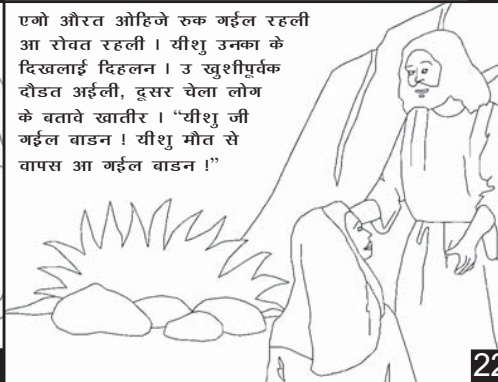 एगो औरत ओहिजे रुक गईल रहली
आ रोवत रहली । यीशु उनका के
दिखलाई दिहलन । उ खुशीपूर्वक
दौडत अईली, दूसर चेला लोग
के बतावे खातीर । “यीशु जी
गईल बाडन ! यीशु मौत से
वापस आ गईल बाडन !”
22